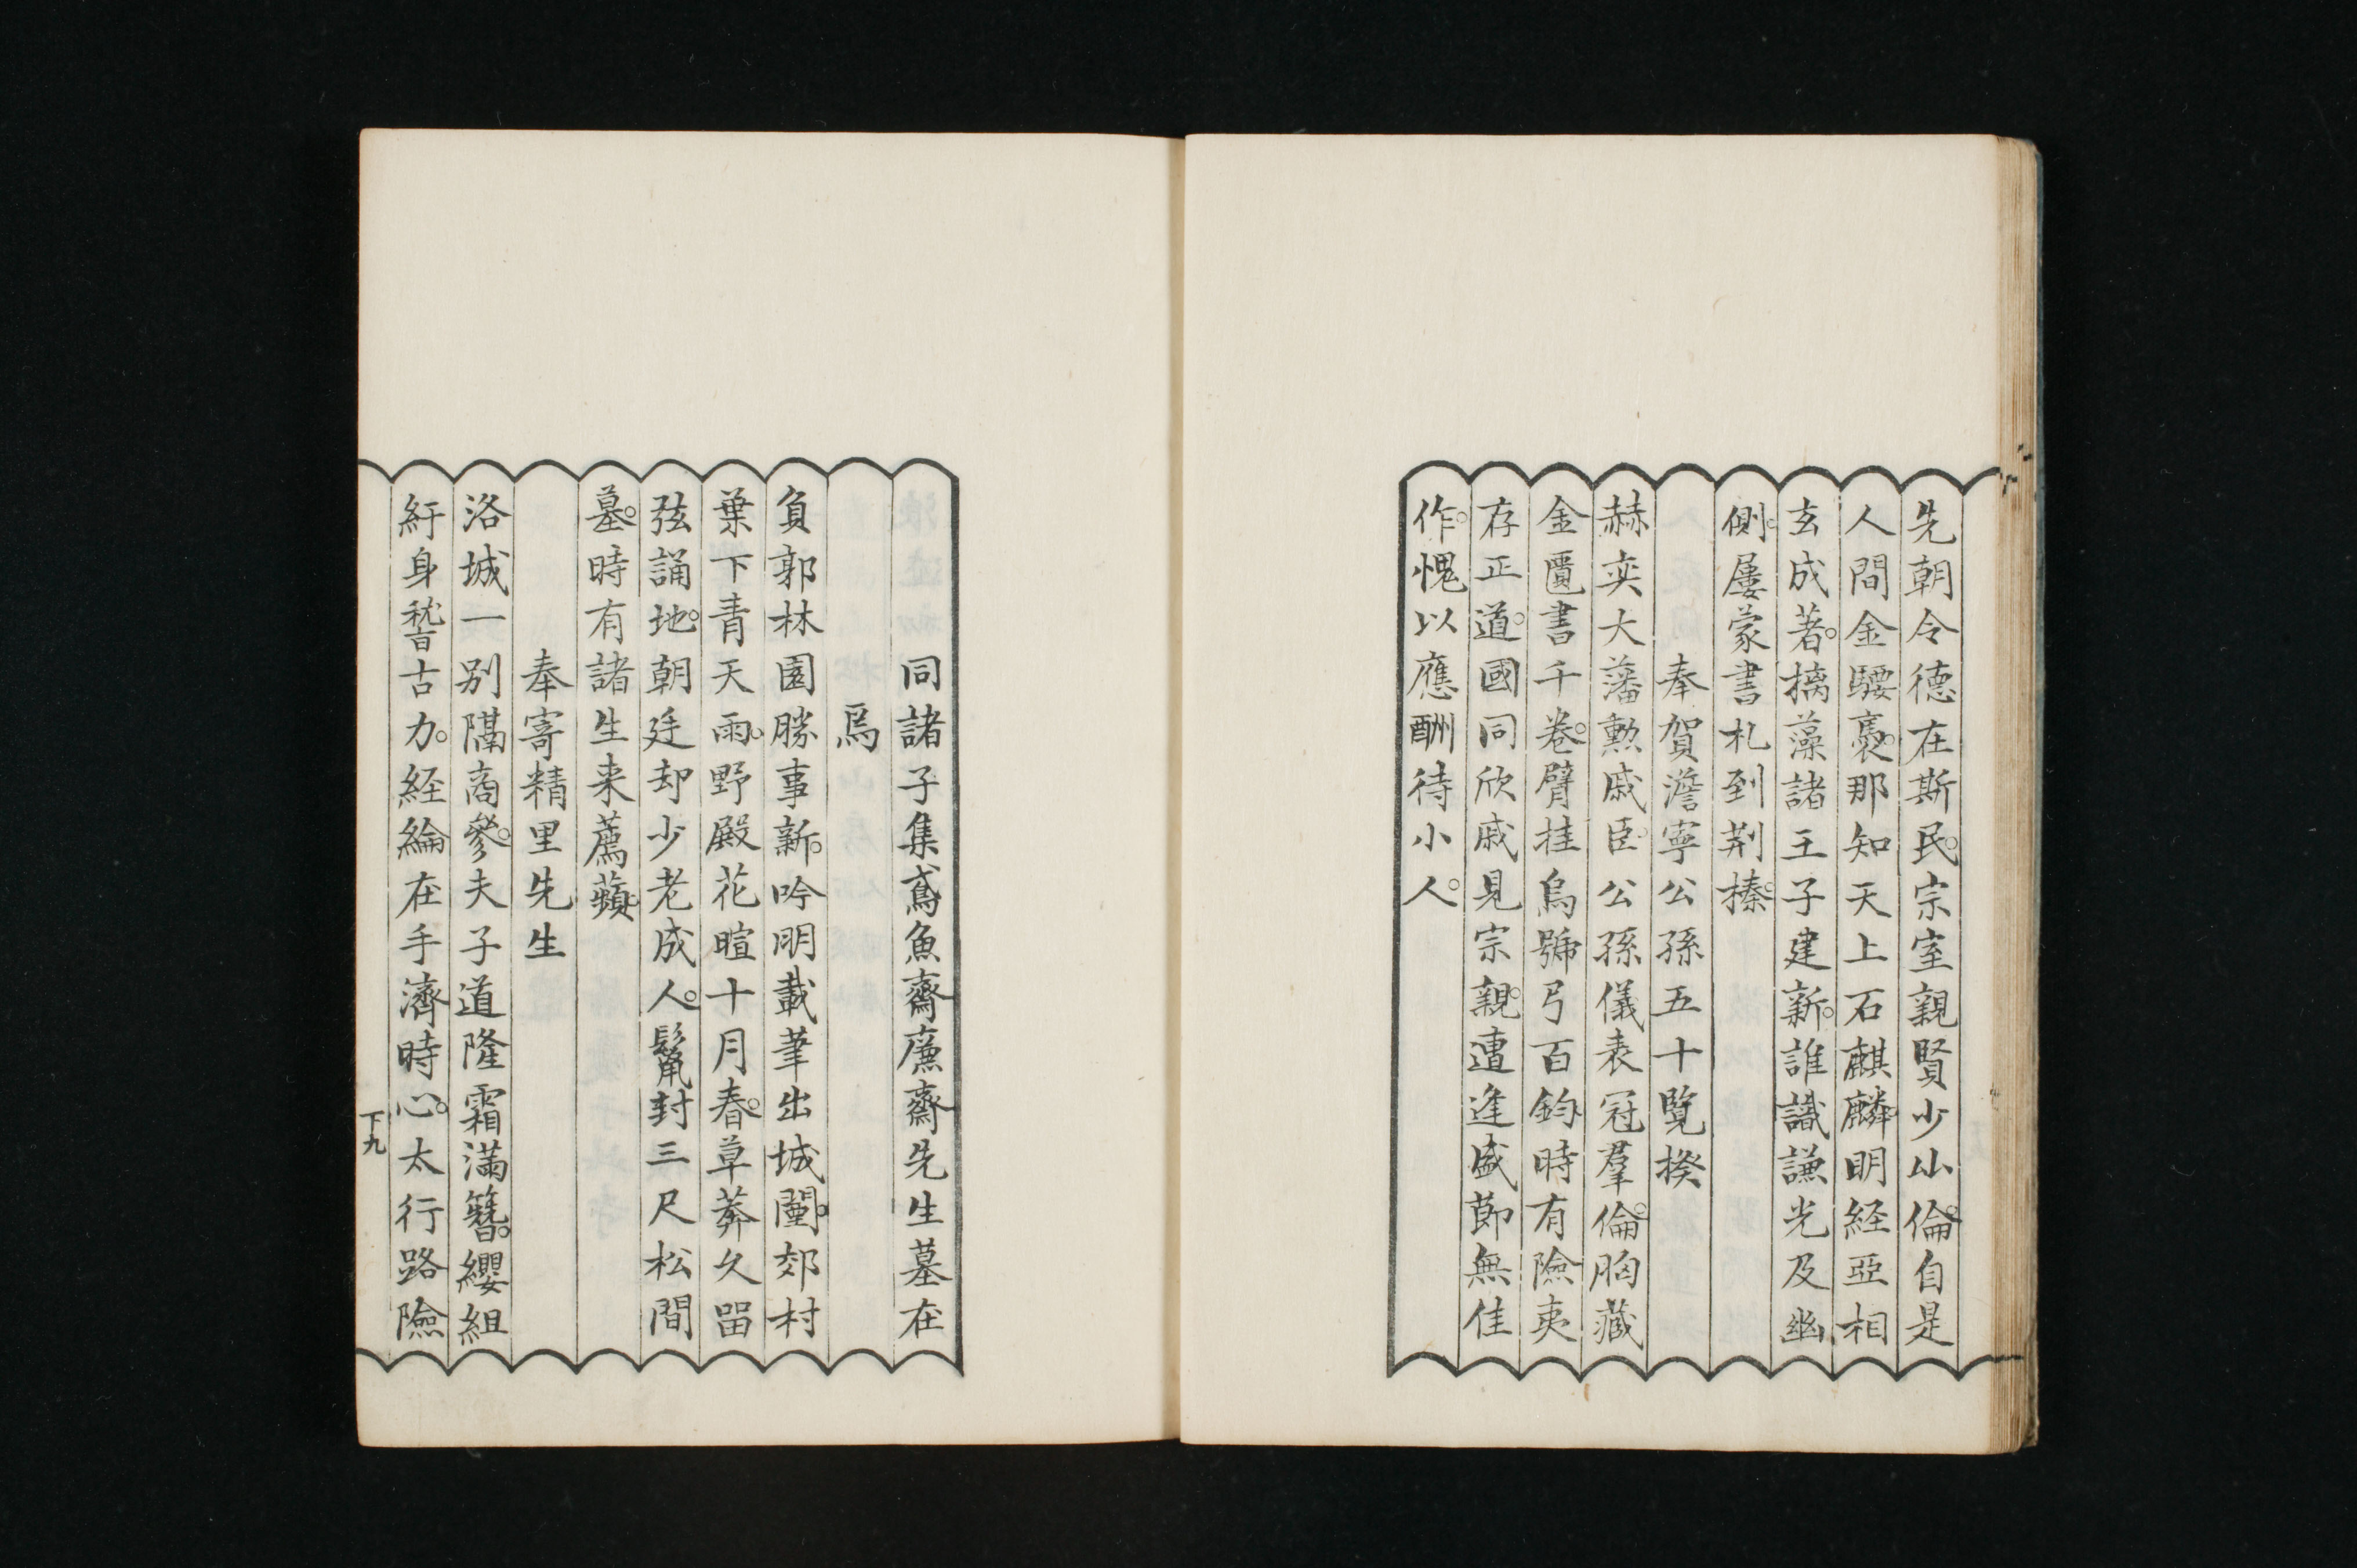 先朝令德在斯民。宗室親賢少比倫。自是
人間金騕褭。那知天上石麒麟。明経亞相
玄成著。摛藻諸王子建新。誰識謙光及幽
側。屢蒙書札到荆榛。
奉賀澹寧公孫五十覽揆
赫奕大藩勲戚臣。公孫儀表冠羣倫。胸藏
金匱書千卷。臂挂烏號弓百鈞。時有險夷
存正道。國同欣戚見宗親。遭逢盛節無佳
作。愧以應酬待小人。
同諸子集鳶魚齋廉齋先生墓在
焉
負郭林園勝事新。吟朋載筆出城闉。郊村
葉下青天雨。野殿花暄十月春。草莽久留
弦誦地。朝廷却少老成人。鬣封三尺松間
墓。時有諸生来薦蘋。
奉寄精里先生
洛城一別隔商參。夫子道隆霜滿簪。纓組
紆身嵆古力。経綸在手濟時心。太行路險
下九